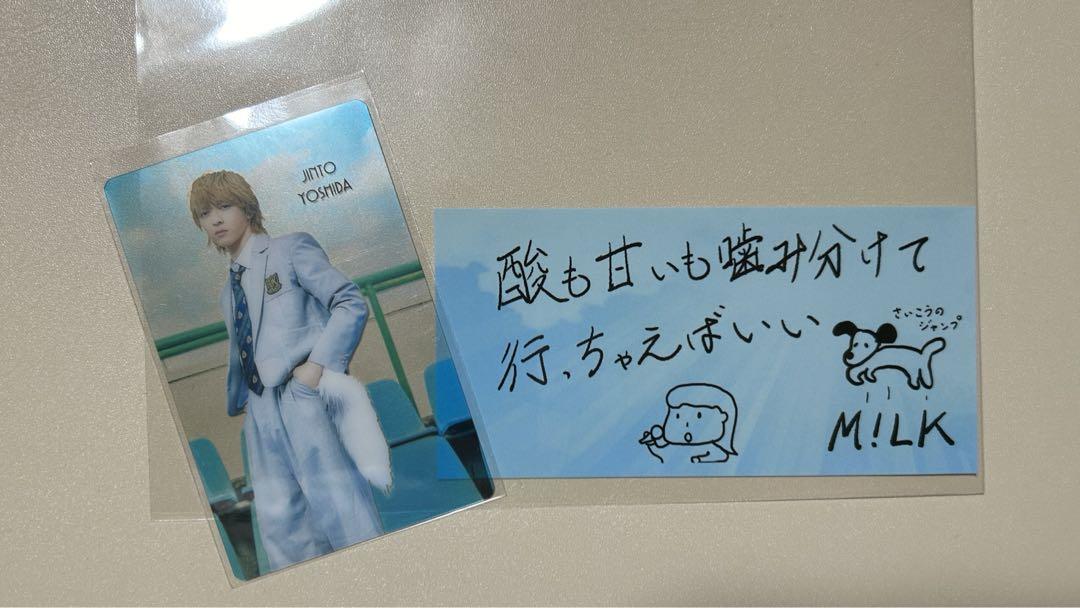 JINTO
YOSHIDA
酸も甘いも噛み分けて
行っちゃえばいい
さいこうの
ジャンプ
M!LK